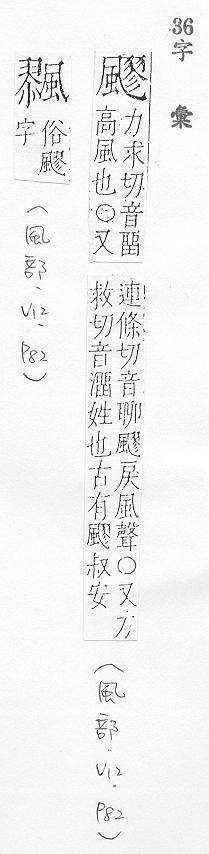 36 字彙
飂 力求切音畱
高風也○又
連條切音聊飂戾風聲○又力
救切音溜姓也古有飂叔安
(風部.V12.P82)
俗飂
字
(風部.V12.P82)